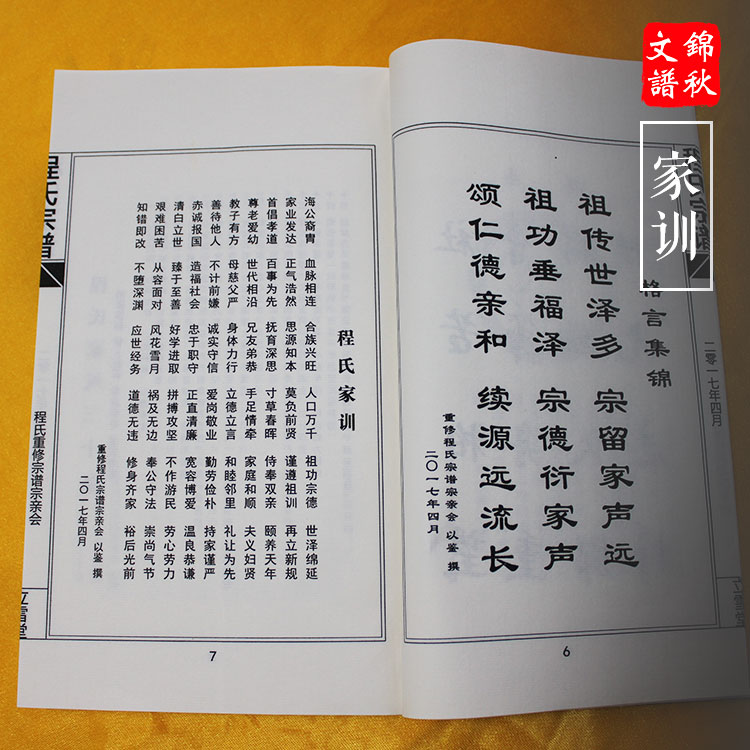 錦秋
文譜
家训
二零一七年四月
立雪堂
格言集锦
祖传世泽多 宗留家声远
祖功垂福泽 宗德衍家声
颂仁德亲和 续源远流长
重修程氏宗谱宗亲会 以鉴 撰
二〇一七年四月
6
程氏家训
海公裔胄 血脉相连 合族兴旺 人口万千 祖功宗德 世泽绵延
家业发达 正气浩然 思源知本 莫负前贤 谨遵祖训 再立新规
首倡孝道 百事为先 抚育深思 寸草春晖 侍奉双亲 颐养天年
尊老爱幼 世代相沿 兄友弟恭 手足情牵 家庭和顺 夫义妇贤
教子有方 母慈父严 身体力行 立德立言 和睦邻里 礼让为先
善待他人 不计前嫌 诚实守信 爱岗敬业 勤劳俭朴 持家谨严
赤诚报国 造福社会 忠于职守 正直清廉 宽容博爱 温良恭谦
清白立世 臻于至善 好学进取 拼搏攻坚 不作游民 劳心劳力
艰难困苦 从容面对 风花雪月 祸及无边 奉公守法 崇尚气节
知错即改 不堕深渊 应世经务 道德无违 修身齐家 裕后光前
重修程氏宗谱宗亲会 以鉴 撰
二〇一七年四月
7
程氏宗谱
程氏重修宗谱宗亲会
立雪堂